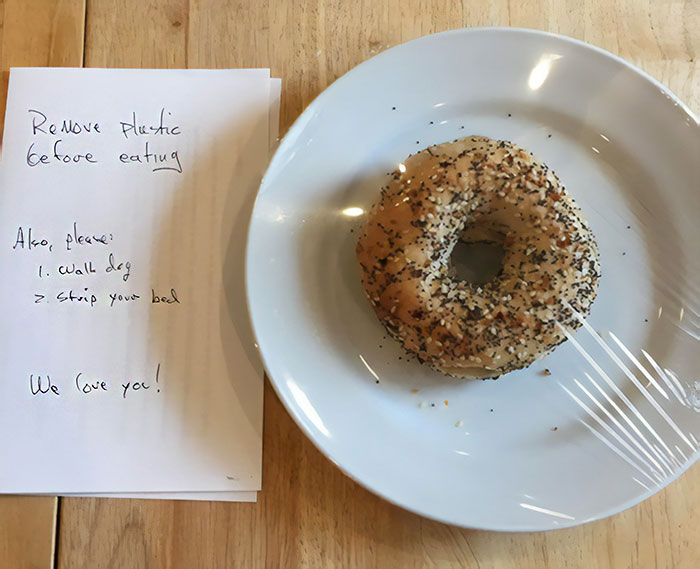 Remove plastic
before eating
Also, please:
1. Walk dog
2. Strip your bed
We love you!